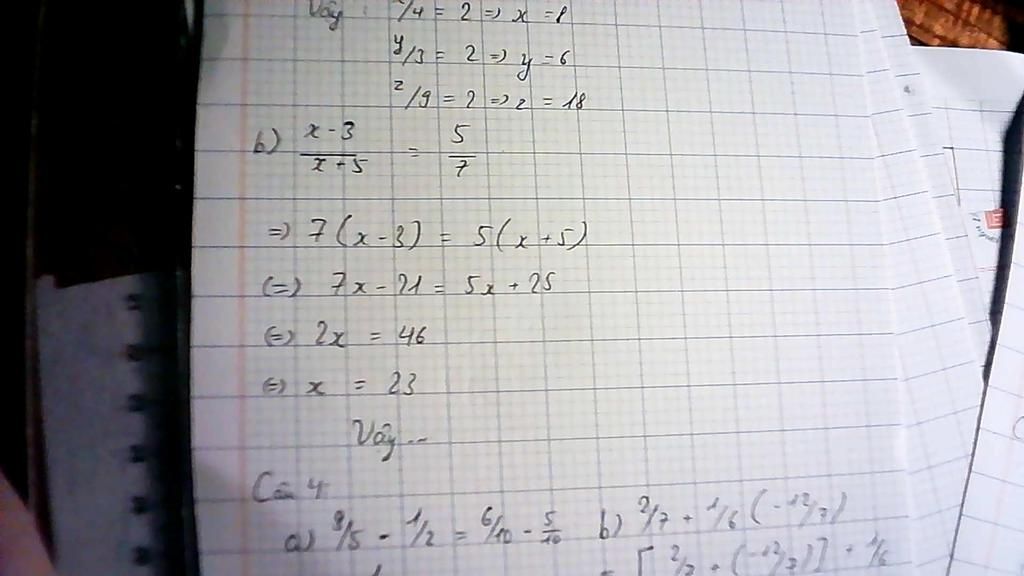 Vậy: x/4 = 2 => x = 8
y/3 = 2 => y = 6
z/9 = 2 => z = 18
b) x - 3 / x + 5 = 5 / 7
=> 7(x - 3) = 5(x + 5)
(=) 7x - 21 = 5x + 25
(=) 2x = 46
(=) x = 23
Vậy ...
Câu 4
a) 3/5 - 1/2 = 6/10 - 5/10 b) 2/7 + 1/6 (-12/7)
= [2/7 + (-12/7)] + 1/6